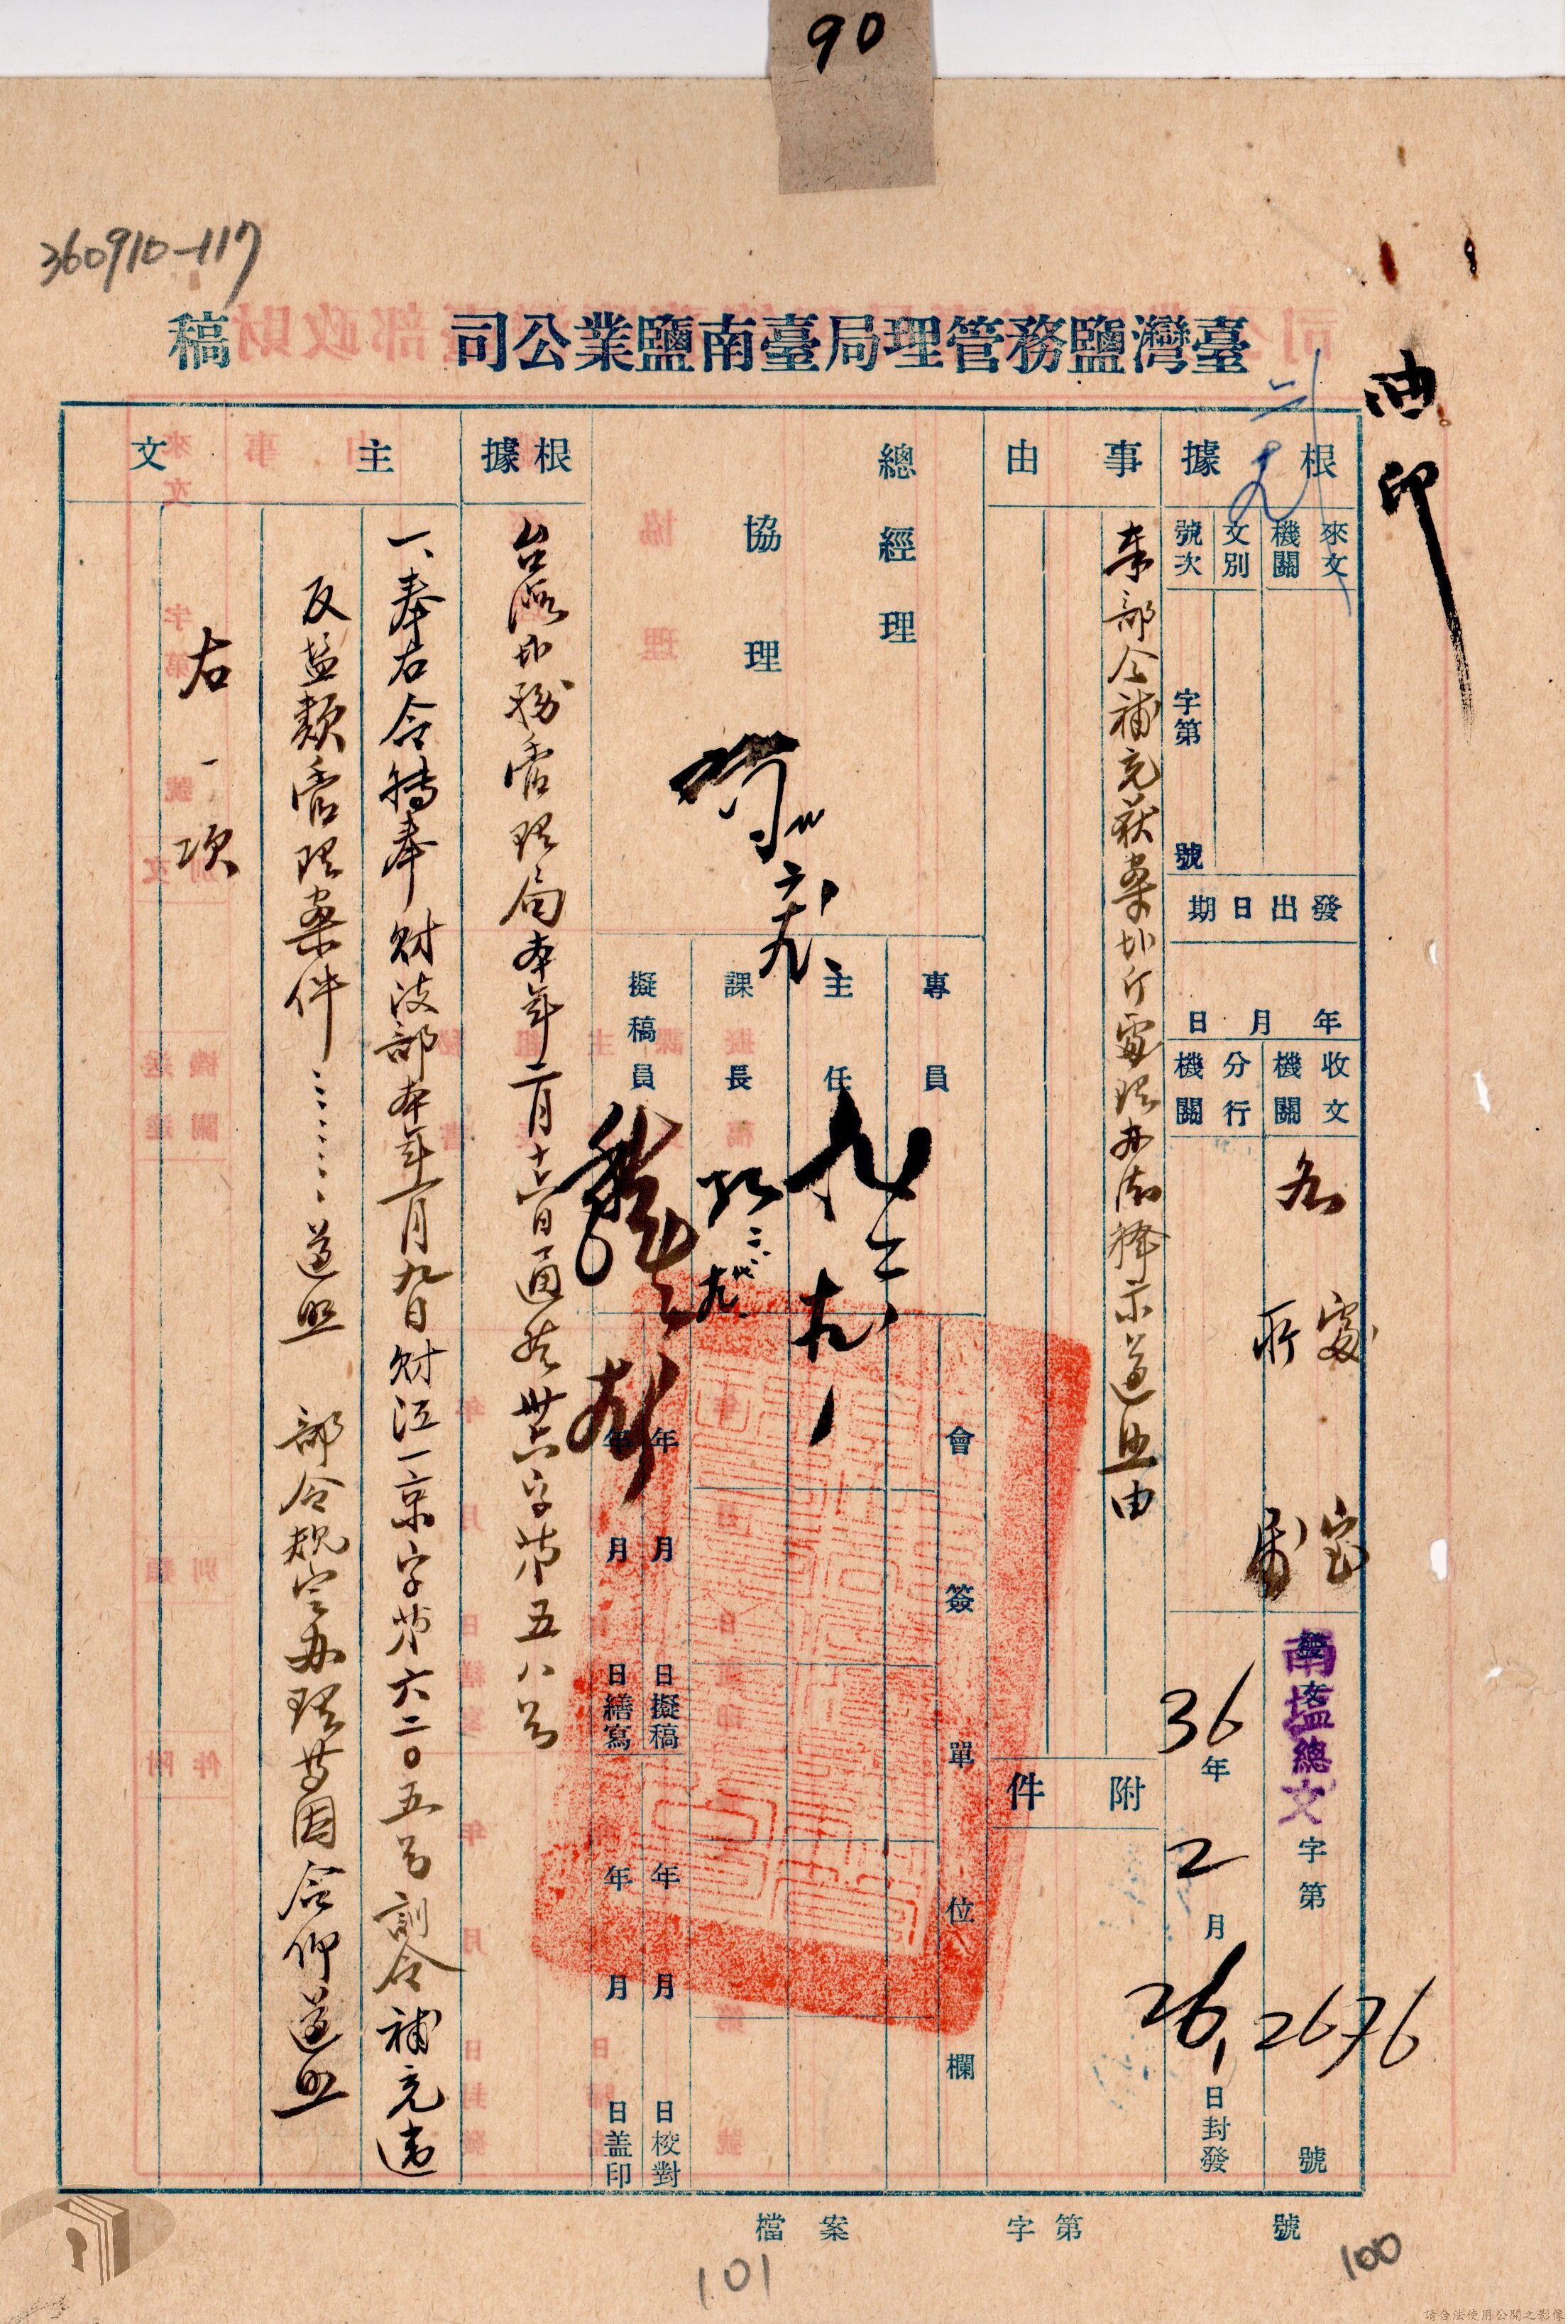 90
360910-117
臺灣鹽務管理局臺南鹽業公司
稿
油印
根據
來文機關
文別
號次
字第
號
發出日期
年
月
日
收文機關
分行機關
各
處
所
室
南塩總文
字第
2676
號
36
年
2
月
26
日封發
事由
奉部令補充获案塩斤處理办法释示遵照由
附件
總經理
協理
專員
主任
課長
擬稿員
會簽單位欄
年
月
日擬稿
年
月
日繕寫
年
月
日校對
年
月
日盖印
根據
台湾塩務管理局本年二月十六日通
字第五八号
主文
一、奉右令轉奉財政部本年一月九日財江一京字第六二〇五号訓令補充違
反塩類管理案件…………遵照 部令規定办理等因合仰遵照
右一项
檔案
字第
號
101
100
請合法使用公開之影像